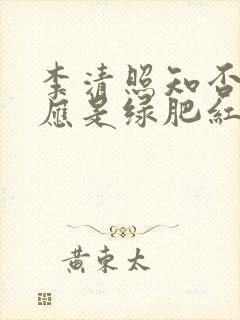 李清照知否
应是绿肥红
黄东太